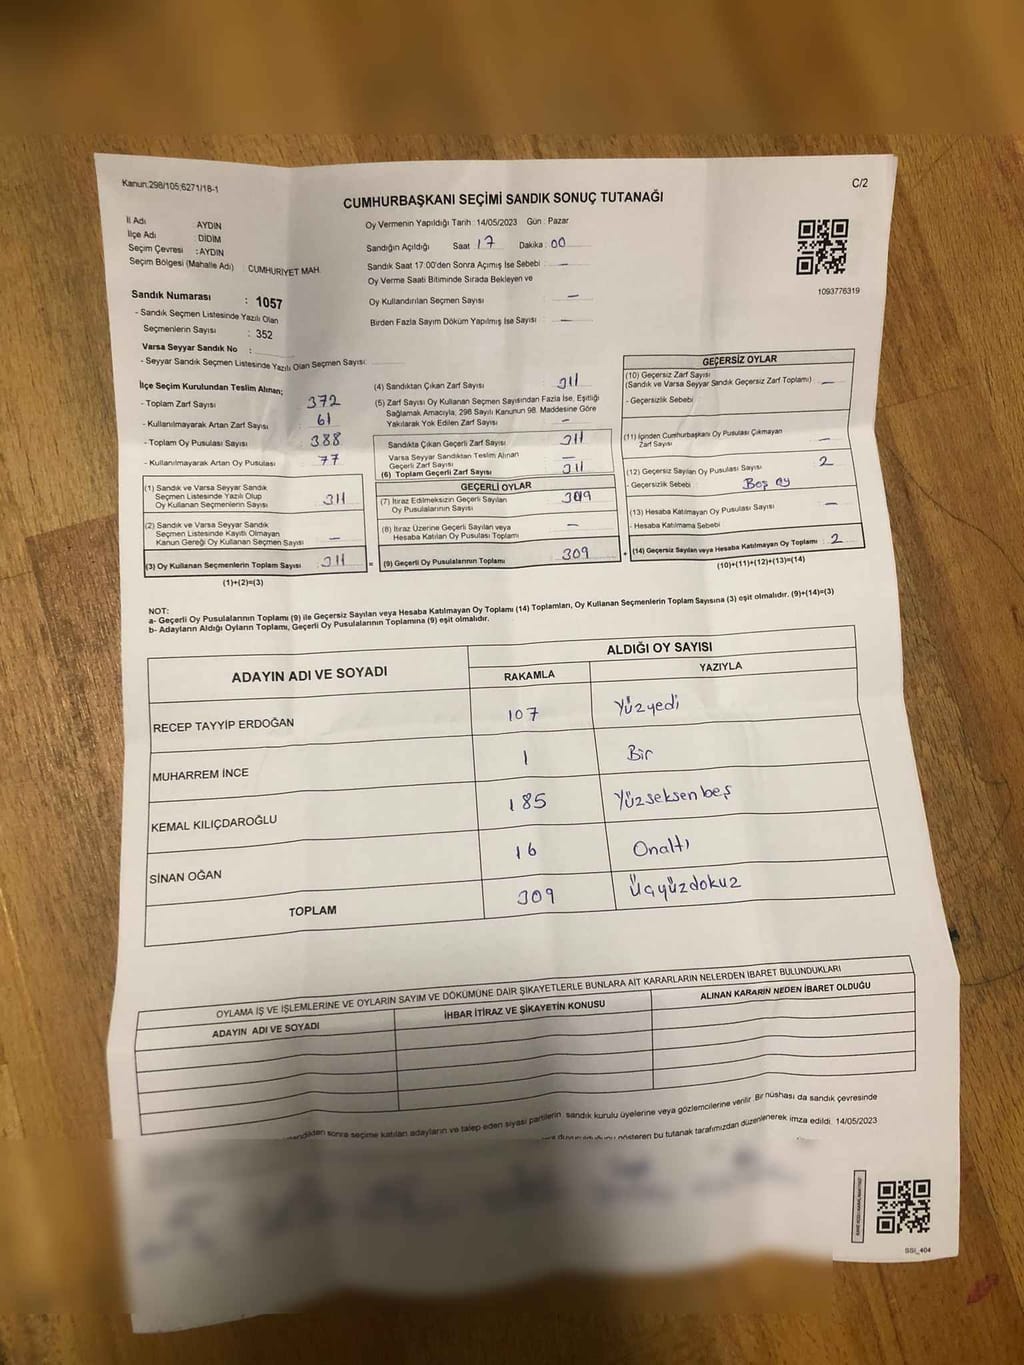 Kanun:298/105;6271/18-1
C/2
CUMHURBAŞKANI SEÇİMİ SANDIK SONUÇ TUTANAĞI
İl Adı : AYDIN
İlçe Adı : DİDİM
Seçim Çevresi : AYDIN
Seçim Bölgesi (Mahalle Adı) : CUMHURİYET MAH.
Oy Vermenin Yapıldığı Tarih : 14/05/2023 Gün : Pazar
Sandığın Açıldığı Saat 17 Dakika : 00
Sandık Saat 17:00'den Sonra Açımış İse Sebebi : —
Oy Verme Saati Bitiminde Sırada Bekleyen ve
Oy Kullandırılan Seçmen Sayısı —
Birden Fazla Sayım Döküm Yapılmış İse Sayısı : —
1093776319
Sandık Numarası : 1057
- Sandık Seçmen Listesinde Yazılı Olan
Seçmenlerin Sayısı : 352
Varsa Seyyar Sandık No :
- Seyyar Sandık Seçmen Listesinde Yazılı Olan Seçmen Sayısı:
İlçe Seçim Kurulundan Teslim Alınan;
- Toplam Zarf Sayısı 372
- Kullanılmayarak Artan Zarf Sayısı 61
- Toplam Oy Pusulası Sayısı 388
- Kullanılmayarak Artan Oy Pusulası 77
(1) Sandık ve Varsa Seyyar Sandık
Seçmen Listesinde Yazılı Olup
Oy Kullanan Seçmenlerin Sayısı 311
(2) Sandık ve Varsa Seyyar Sandık
Seçmen Listesinde Kayıtlı Olmayan
Kanun Gereği Oy Kullanan Seçmen Sayısı —
(3) Oy Kullanan Seçmenlerin Toplam Sayısı 311
(1)+(2)=(3)
(4) Sandıktan Çıkan Zarf Sayısı 311
(5) Zarf Sayısı Oy Kullanan Seçmen Sayısından Fazla İse, Eşitliği
Sağlamak Amacıyla, 298 Sayılı Kanunun 98. Maddesine Göre
Yakılarak Yok Edilen Zarf Sayısı —
Sandıkta Çıkan Geçerli Zarf Sayısı 311
Varsa Seyyar Sandıktan Teslim Alınan
Geçerli Zarf Sayısı —
(6) Toplam Geçerli Zarf Sayısı 311
GEÇERLİ OYLAR
(7) İtiraz Edilmeksizin Geçerli Sayılan
Oy Pusulalarının Sayısı 309
(8) İtiraz Üzerine Geçerli Sayılan veya
Hesaba Katılan Oy Pusulası Toplamı —
= (9) Geçerli Oy Pusulalarının Toplamı 309 +
GEÇERSİZ OYLAR
(10) Geçersiz Zarf Sayısı
(Sandık ve Varsa Seyyar Sandık Geçersiz Zarf Toplamı) —
- Geçersizlik Sebebi
(11) İçinden Cumhurbaşkanı Oy Pusulası Çıkmayan
Zarf Sayısı —
(12) Geçersiz Sayılan Oy Pusulası Sayısı 2
- Geçersizlik Sebebi Boş oy
(13) Hesaba Katılmayan Oy Pusulası Sayısı —
- Hesaba Katılmama Sebebi
(14) Geçersiz Sayılan veya Hesaba Katılmayan Oy Toplamı 2
(10)+(11)+(12)+(13)=(14)
NOT:
a- Geçerli Oy Pusulalarının Toplamı (9) ile Geçersiz Sayılan veya Hesaba Katılmayan Oy Toplamı (14) Toplamları, Oy Kullanan Seçmenlerin Toplam Sayısına (3) eşit olmalıdır. (9)+(14)=(3)
b- Adayların Aldığı Oyların Toplamı, Geçerli Oy Pusulalarının Toplamına (9) eşit olmalıdır.
ADAYIN ADI VE SOYADI
ALDIĞI OY SAYISI
RAKAMLA YAZIYLA
RECEP TAYYİP ERDOĞAN 107 Yüzyedi
MUHARREM İNCE 1 Bir
KEMAL KILIÇDAROĞLU 185 Yüzseksenbeş
SİNAN OĞAN 16 Onaltı
TOPLAM 309 Üçyüzdokuz
OYLAMA İŞ VE İŞLEMLERİNE VE OYLARIN SAYIM VE DÖKÜMÜNE DAİR ŞİKAYETLERLE BUNLARA AİT KARARLARIN NELERDEN İBARET BULUNDUKLARI
ADAYIN ADI VE SOYADI İHBAR İTİRAZ VE ŞİKAYETİN KONUSU ALINAN KARARIN NEDEN İBARET OLDUĞU
sonra seçime katılan adayların ve talep eden siyasi partilerin, sandık kurulu üyelerine veya gözlemcilerine verilir. Bir nüshası da sandık çevresinde
gösteren bu tutanak tarafımızdan düzenlenerek imza edildi. 14/05/2023
SSİ_404